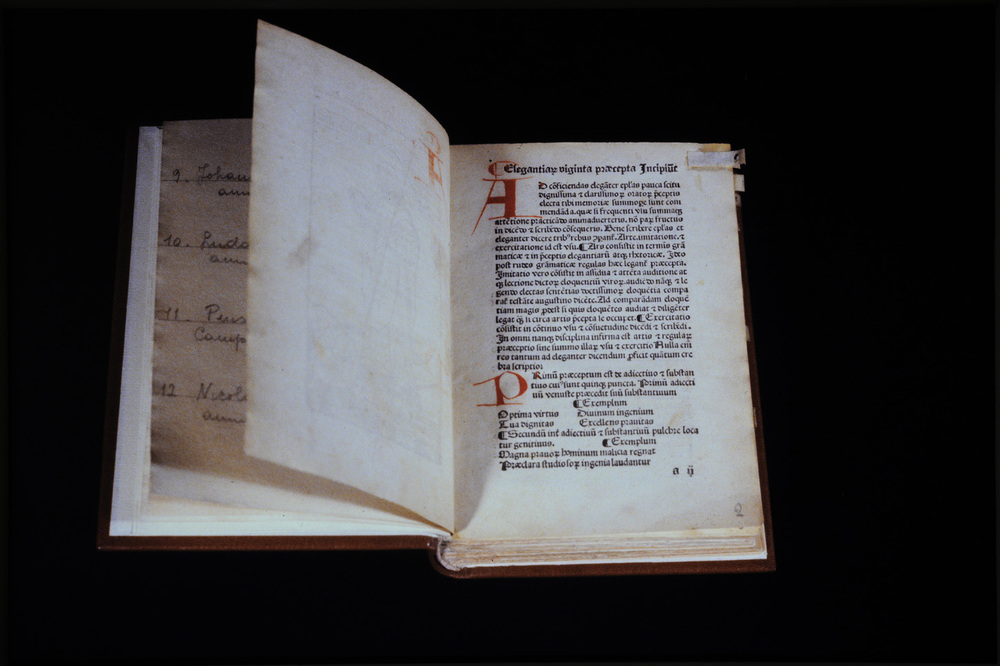 9. Johan
ann
10. Ludo
ann
11. Pers
Camp
12 Nicol
ann
Elegantiaꝝ viginta præcepta Incipiūt
AD cōficiendas elegāter epl̄as pauca scitu
dignissima ⁊ clarissimoꝝ oratoꝝ p̄ceptis
electa tibi memoriæ summope sunt com
mendāda. quæ si frequenti vsu summaqꝫ
attētione practicādo animaduerteris. nō paꝝ fructus
in dicēdo ⁊ scribēdo cōsequeris. Bene scribere epl̄as et
eleganter dicere tribꝰ rebus Arte. imitatione. ⁊
exercitatione id est vsu. ¶ Ars consistit in termis grā
maticæ ⁊ in p̄ceptis elegantiaꝝ atqꝫ rhetoricæ.
post rudes grāmaticæ regulas hæc legant̄ præcepta.
Imitatio vero cōsistit in assidua ⁊ attēta auditione at
qꝫ lectione dictoꝝ eloquentiū viroꝝ. audiēdo nāqꝫ ⁊ le
gendo electas sentētias doctissimoꝝ eloquētia compa
rat̄ testāte augustino dicēte. Ad comparādam eloquē
tiam magis p̄dest si quis eloquētes audiat ⁊ diligēter
legat qꝫ si circa artis p̄cepta se occupet. ¶ Exercitatio
cōsistit in cōtinuo vsu ⁊ cōsuetudine dicēdi ⁊ scribēdi.
In omni nanqꝫ disciplina infirma est artis ⁊ regulaꝝ
præceptio sine summo illaꝝ vsu ⁊ exercitio Nulla em̄
res tantum ad eleganter dicendum p̄ficit quātum cre
bra scriptio:
PRimū præceptum est de adiectiuo ⁊ substan
tiuo cuiꝰ sunt quinqꝫ puncta. Primū adiecti
uū venuste præcedit suū substantiuum
¶ Exemplum
Optima virtus Diuinum ingenium
Tua dignitas Excellens prauitas
¶ Secundū int̄ adiectiuū ⁊ substantiuū pulchre loca
tur genitiuus. ¶ Exemplum
Magna prauoꝝ hominum malicia regnat
Præclara studiosoꝝ ingenia laudantur
a ij
2